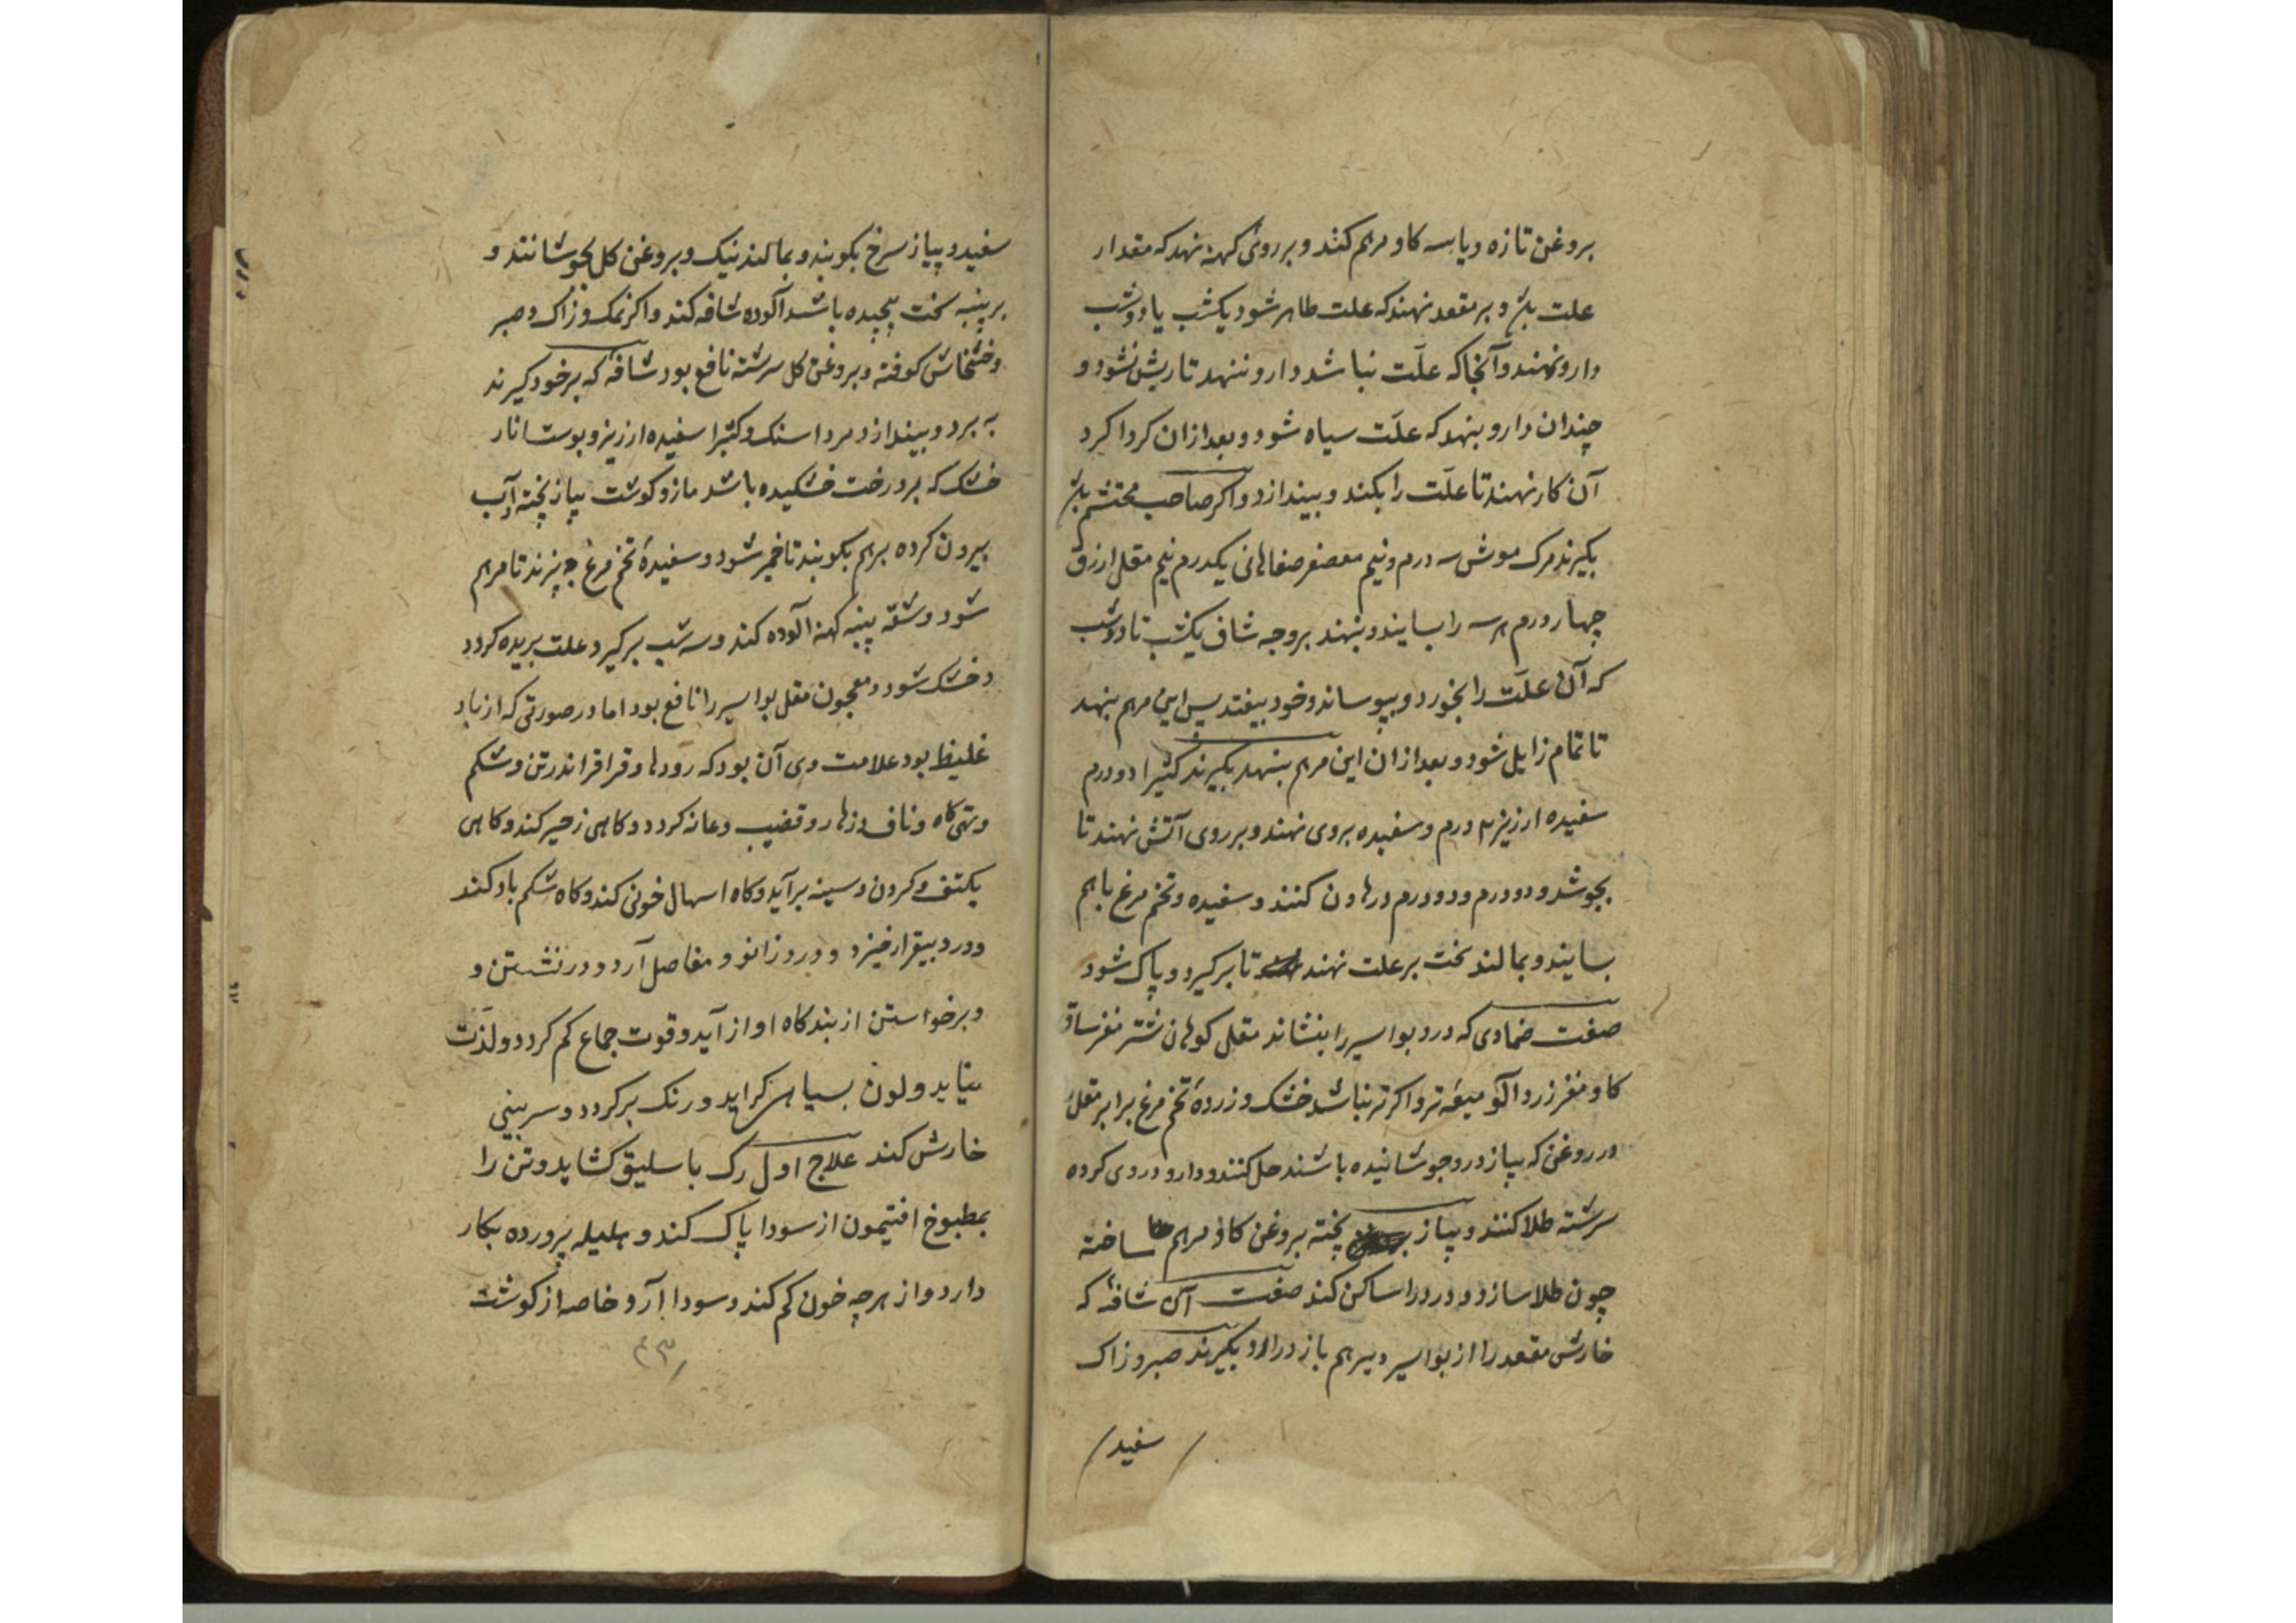 بروغن تازه و یا سه کاو مرهم کنند و بر روی کهنه نهد که مقدار
علت باشد و بر مقعد نهند که علت طاهر شود یکشب یا دوشب
دارو نهند و آنجا که علّت نباشد دارو ننهد تا ریش نشود و
چندان دارو بنهد که علّت سیاه شود و بعد ازان کرداکرد
آن کار نهند تا علّت را بکند و بیندازد و اکر صاحب محتشم باشد
بکیرند مرک موش سه درم و نیم معصفر صفاهانی یکدرم نیم مقل ازرق
چهار درم هر سه را بسایند و بنهند بر وجه شاف یکشب تا دوشب
که آن علّت را بخورد و بپوساند و خود بیفتد پس این مرهم بنهد
تا تمام زایل شود و بعد ازان این مرهم بنهد بکیرند کثیرا دو درم
سفیده ارزیز ۲ درم و سفیده بروی نهند و بر روی آتش نهند تا
بجوشد و دو درم و دو درم در هاون کنند و سفیده و تخم مرغ باهم
بسایند و بمالند سخت بر علت نهند تا بر کیرد و پاک شود
صفت ضمادی که درد بواسیر را بنشاند مقل کوهان شتر مغز ساق
کاو مغز زردآلو میعه تر و اکر تر نباشد خشک و زردهٔ تخم مرغ برابر مقل
در روغن که پیاز درو جوشانیده باشند حل کنند و دارو در وی کرده
سرشته طلا کنند و پیاز پخته بروغن کاو مرهم ساخته
چون طلا سازد و درد را ساکن کند صفت آن شافهٔ که
خارش مقعد را از بواسیر و بیرهم باز دارد بکیرند صبر و زاک
سفید
سفید و پیاز سرخ بکوبند و بمالند نیک و بروغن کل بجوشانند و
بر پنبه سخت پیچیده باشد آلوده شافه کند و اکر نمک و زاک و صبر
و خشخاش کوفته و بروغن کل سرشته نافع بود شافهٔ که بر خود کیرند
به برد و بیندازد مرداسنک و کثیرا سفیده ارزیز و پوست انار
خشک که بر درخت خشکیده باشد مازو کوشت پیاز پخته و آب
بیرون کرده برهم بکوبند تا خمیر شود و سفیدهٔ تخم مرغ بپزند تا مرهم
شود و شقه پنبه کهنه آلوده کند و سه شب بر کیرد علت بریده کردد
و خشک شود و معجون مقل بواسیر را نافع بود اما در صورتی که از باد
غلیظ بود علامت وی آن بود که رودها و قراقر اندر تن و شکم
و تهی کاه و ناف و زهار و قضیب و عانه کردد و کاهی زحیر کند و کاهی
بکتف و کردن و سینه بر آید و کاه اسهال خونی کند و کاه شکم باد کند
و درد بیقرار خیزد و درد زانو و مفاصل آرد و در نشستن و
و برخواستن از بندکاه اواز آید و قوت جماع کم کردد و لذّت
نیابد و لون بسیاهی کراید و رنک بر کردد و سر بینی
خارش کند علاج اول رک باسلیق کشاید و تن را
بمطبوخ افتیمون از سودا پاک کند و هلیله پرورده بکار
دارد و از هرچه خون کم کند و سودا آرد خاصه از کوشت